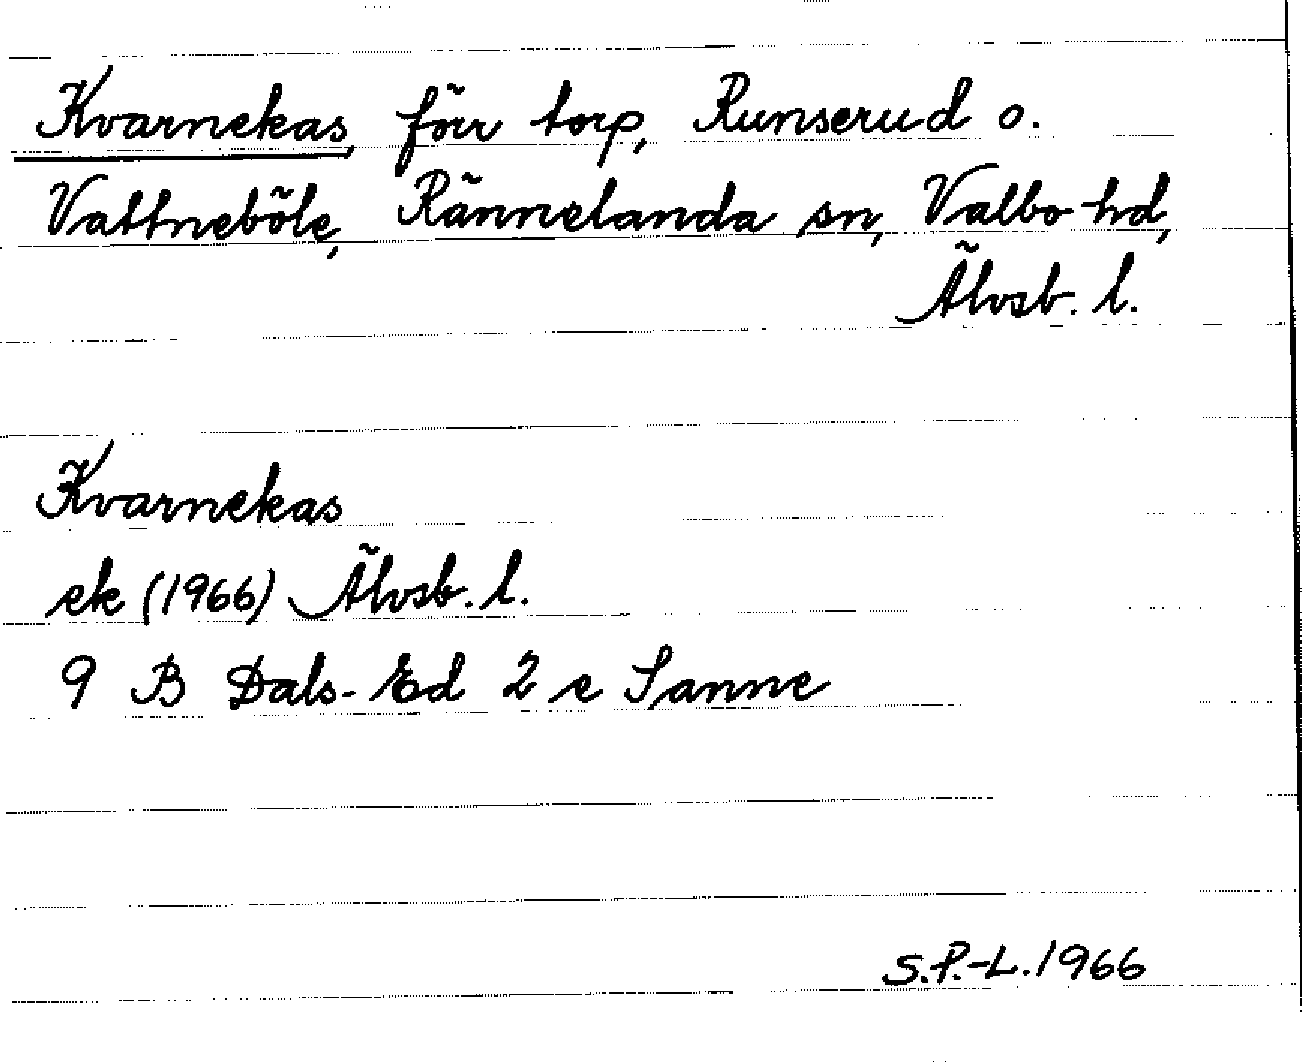 Kvarnekas, förr torp, Runserud o.
Vattneböle, Rännelanda sn, Valbo hd,
Älvsb. l.
Kvarnekas
ek (1966) Älvsb. l.
9 B Dals-Ed 2 e Sanne
S.P.-L. 1966